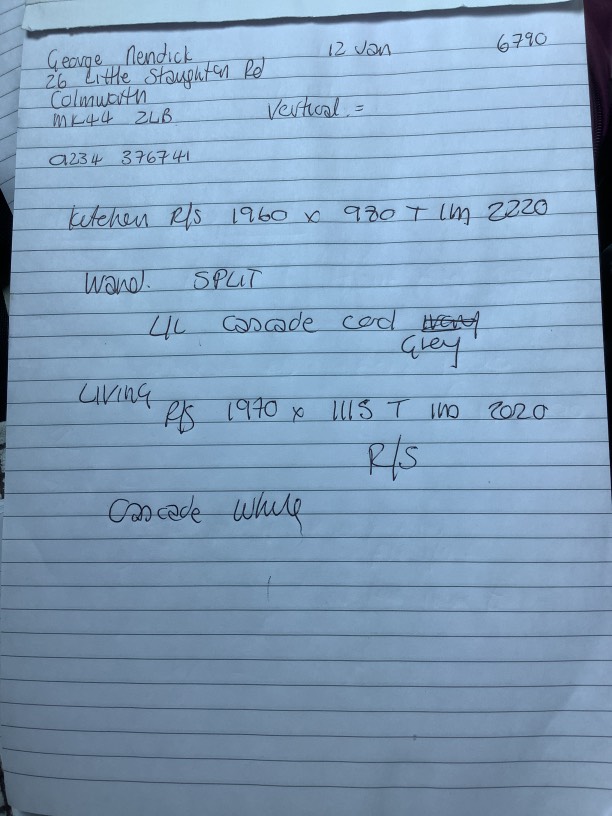 George Mendick 12 Jan 6790
26 Little Staughton Rd
Colmworth
MK44 2LB Vertical =
0234 376741
Kitchen R/S 1960 x 980 T 1m 2220
Wand. SPLIT
L/L Cascade cord
Grey
Living
R/S 1970 x 1115 T 1m 2020
R/S
Cascade White